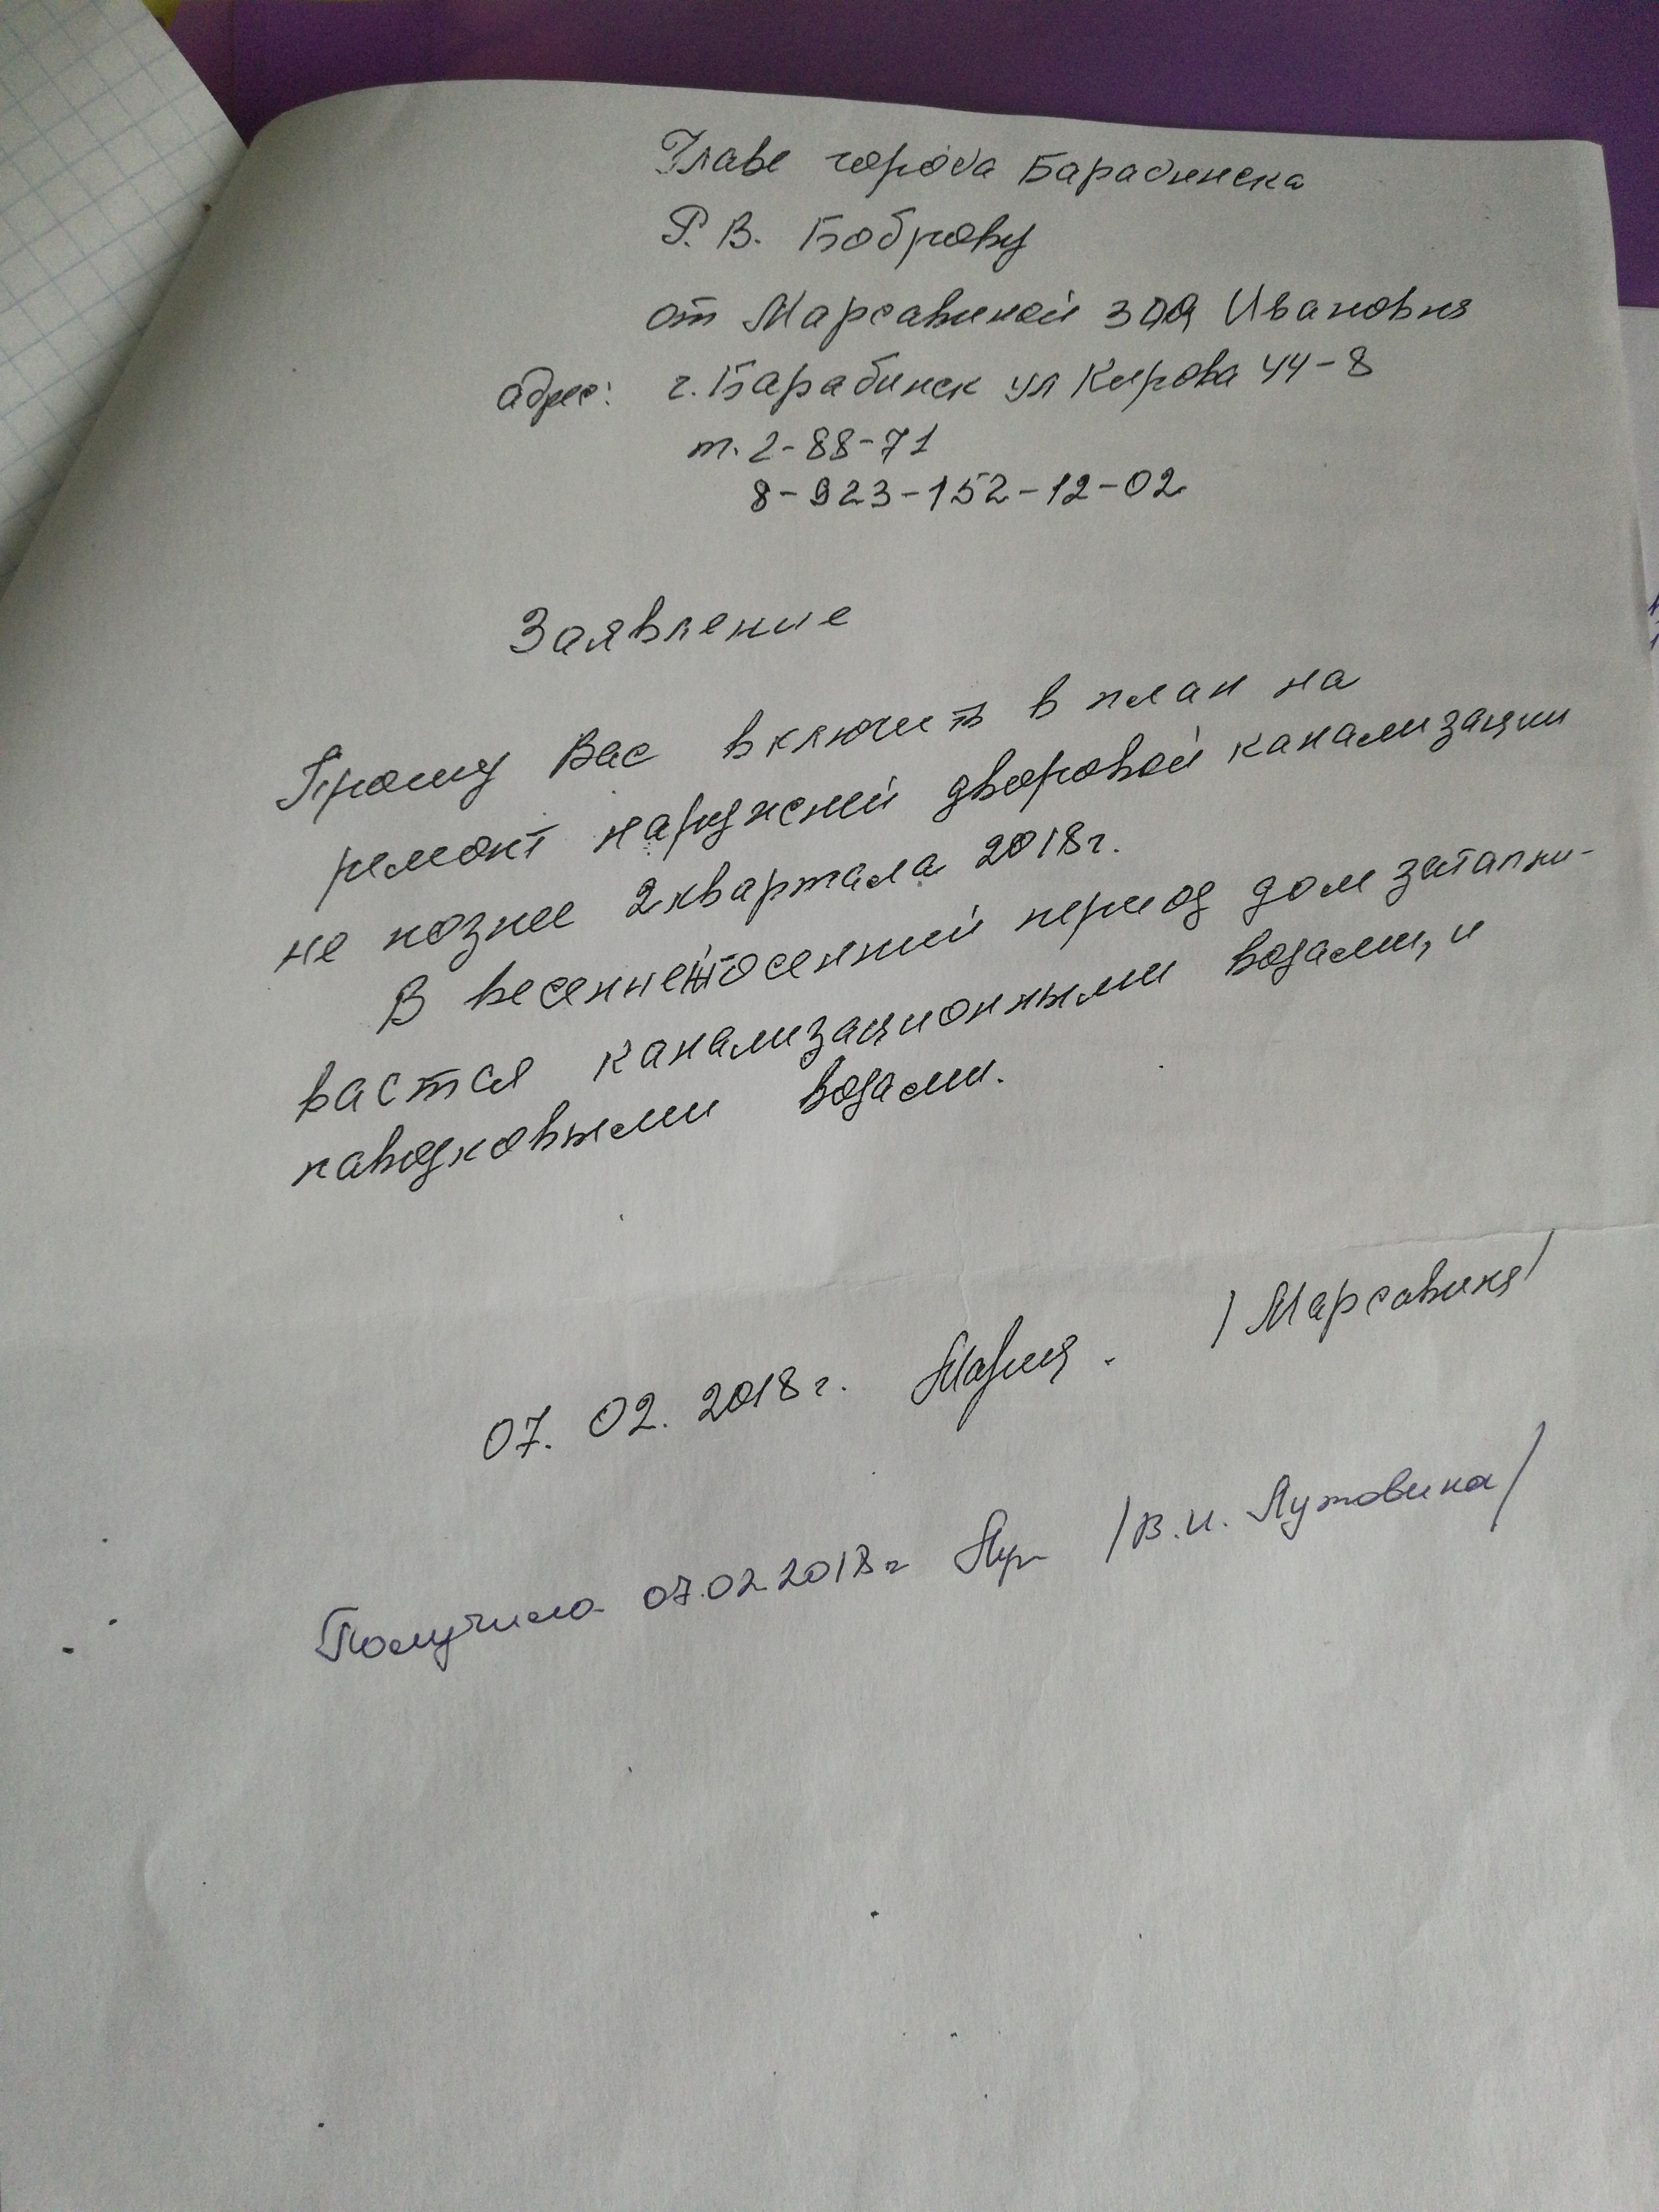 Главе города Барабинска
Р. В. Боброву
от Марсавиной Зоя Ивановня
адрес: г. Барабинск ул Кирова 44-8
т. 2-88-71
8-923-152-12-02
Заявление
Прошу Вас включить в план на
ремонт наружней дворовой канализации
не познее 2 квартала 2018г.
В весенне осенний период дом затапли-
вастся канализационными водами, и
паводковыми водами.
07. 02. 2018 г. /Марсавиня/
Получила 07.02.2018 г /В.И. Лутовина/